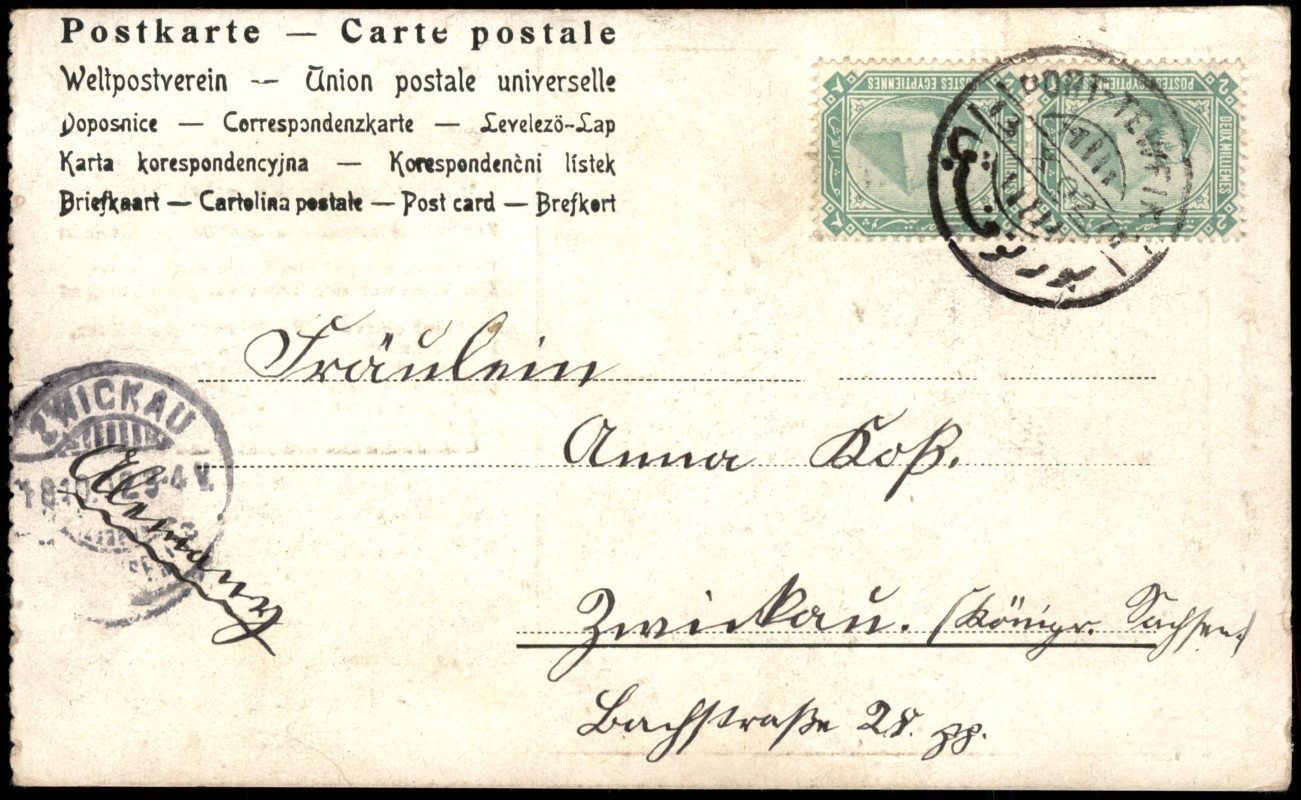 Postkarte — Carte postale
Weltpostverein — Union postale universelle
Dopisnice — Correspondenzkarte — Levelező-Lap
Karta korespondencyjna — Korespondenční lístek
Briefkaart — Cartolina postale — Post card — Brefkort
POSTES EGYPTIENNES
POSTES EGYPTIENNES
DEUX MILLIEMES
2
2
PORT-TEWFIK
بور توفيق
Fräulein
Anna Koß.
ZWICKAU
Alemany
Zwickau. (Königr. Sachsen)
Bachstraße 28. pp.